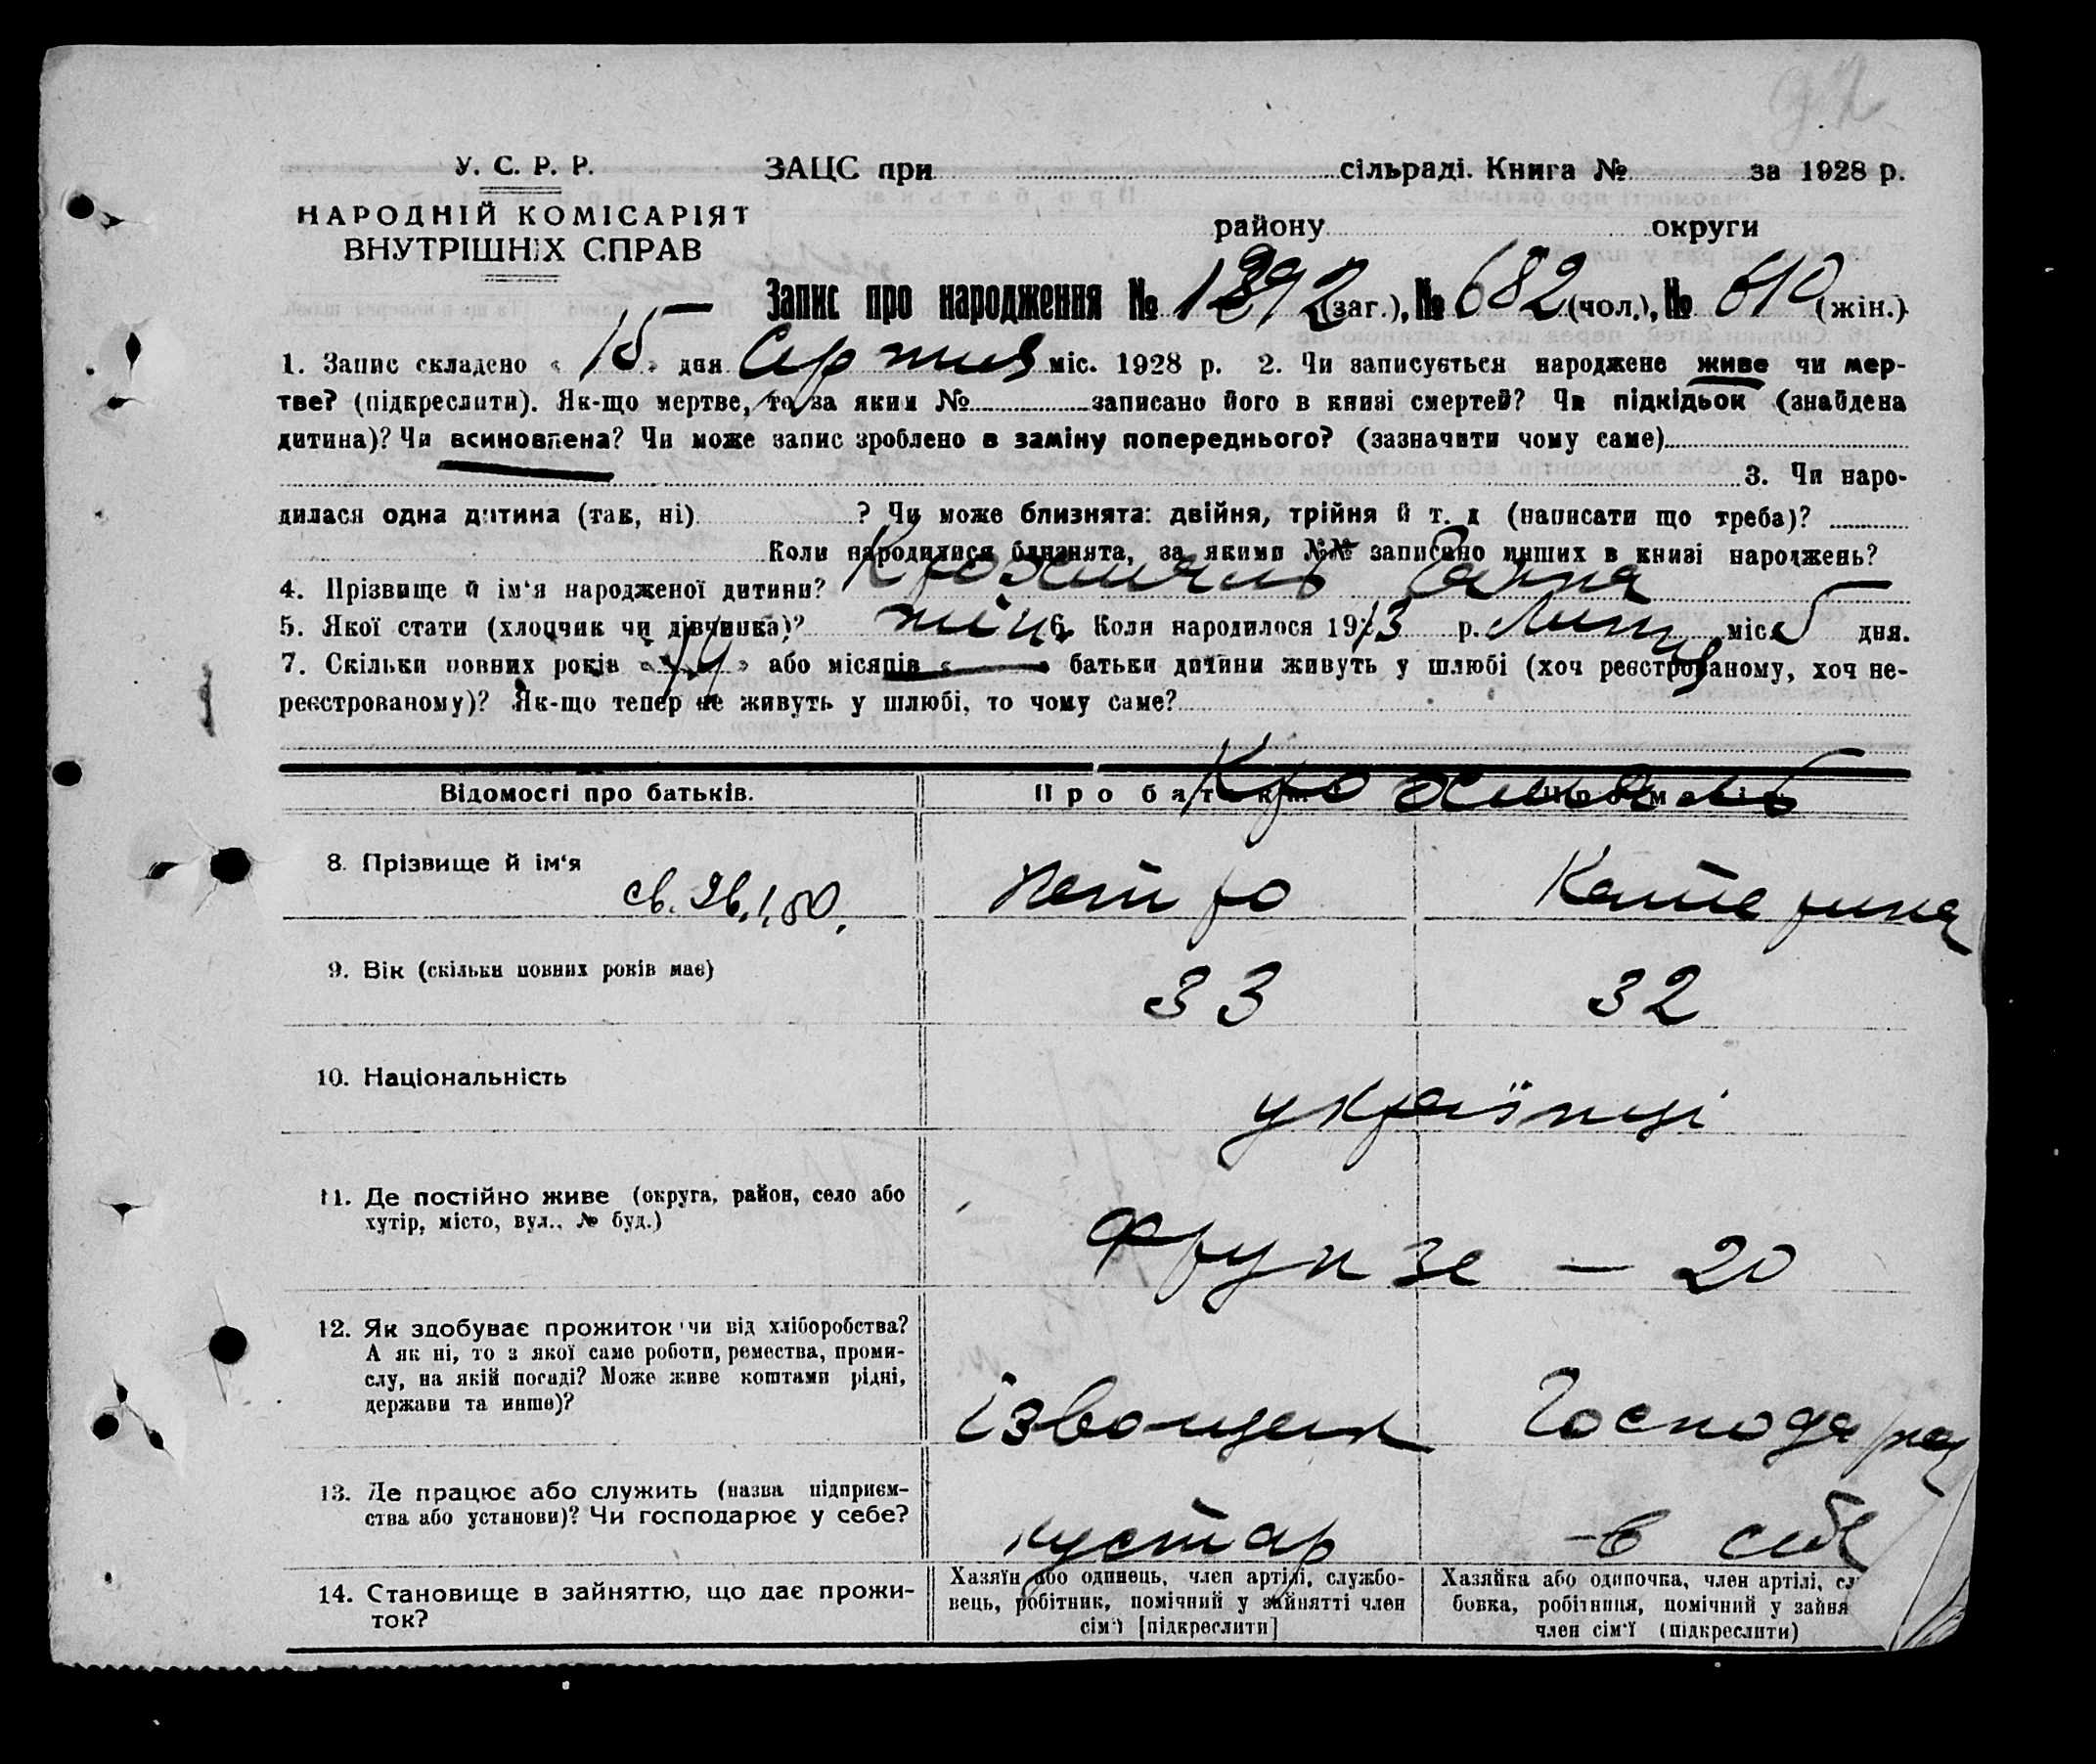 92
У. С. Р. Р.
НАРОДНІЙ КОМІСАРІЯТ
ВНУТРІШНІХ СПРАВ
ЗАЦС при сільраді. Книга № за 1928 р.
району округи
Запис про народження № 1292 (заг.), № 682 (чол.), № 610 (жін.)
1. Запис складено « 15 » дня Серпня міс. 1928 р. 2. Чи записується народжене живе чи мер-
тве? (підкреслити). Як-що мертве, то за яким № записано його в книзі смертей? Чи підкідьок (знайдена
дитина)? Чи всиновлена? Чи може запис зроблено в заміну попереднього? (зазначити чому саме)
3. Чи наро-
дилася одна дитина (так, ні) ? Чи може близнята: двійня, трійня й т. д (написати що треба)?
Коли народилися близнята, за якими №№ записано инших в книзі народжень?
4. Прізвище й ім‘я народженої дитини? Ганна
5. Якої стати (хлопчик чи дівчинка)? жіч 6. Коли народилося 1923 р. Лютця міс. 5 дня.
7. Скільки повних років « 14 » або місяців « — » батьки дитини живуть у шлюбі (хоч реєстрованому, хоч не-
реєстрованому)? Як-що тепер не живуть у шлюбі, то чому саме?
Відомості про батьків. Про батька Про матір
8. Прізвище й ім‘я Петро Катерина
9. Вік (скільки повних років має) 33 32
10. Національність українці
11. Де постійно живе (округа, район, село або
хутір, місто, вул., № буд.) Фрунзе — 20
12. Як здобуває прожиток чи від хліборобства?
А як ні, то з якої саме роботи, ремества, проми-
слу, на якій посаді? Може живе коштами рідні,
держави та инше)? ізвощик Господарка
13. Де працює або служить (назва підприєм-
ства або установи)? Чи господарює у себе? кустар в себе
14. Становище в зайняттю, що дає прожи-
ток?
Хазяїн або одинець, член артілі, службо-
вець, робітник, помічний у зайнятті член
сім‘ї [підкреслити]
Хазяйка або одиночка, член артілі, сл
бовка, робітниця, помічний у зайня
член сім‘ї (підкреслити)